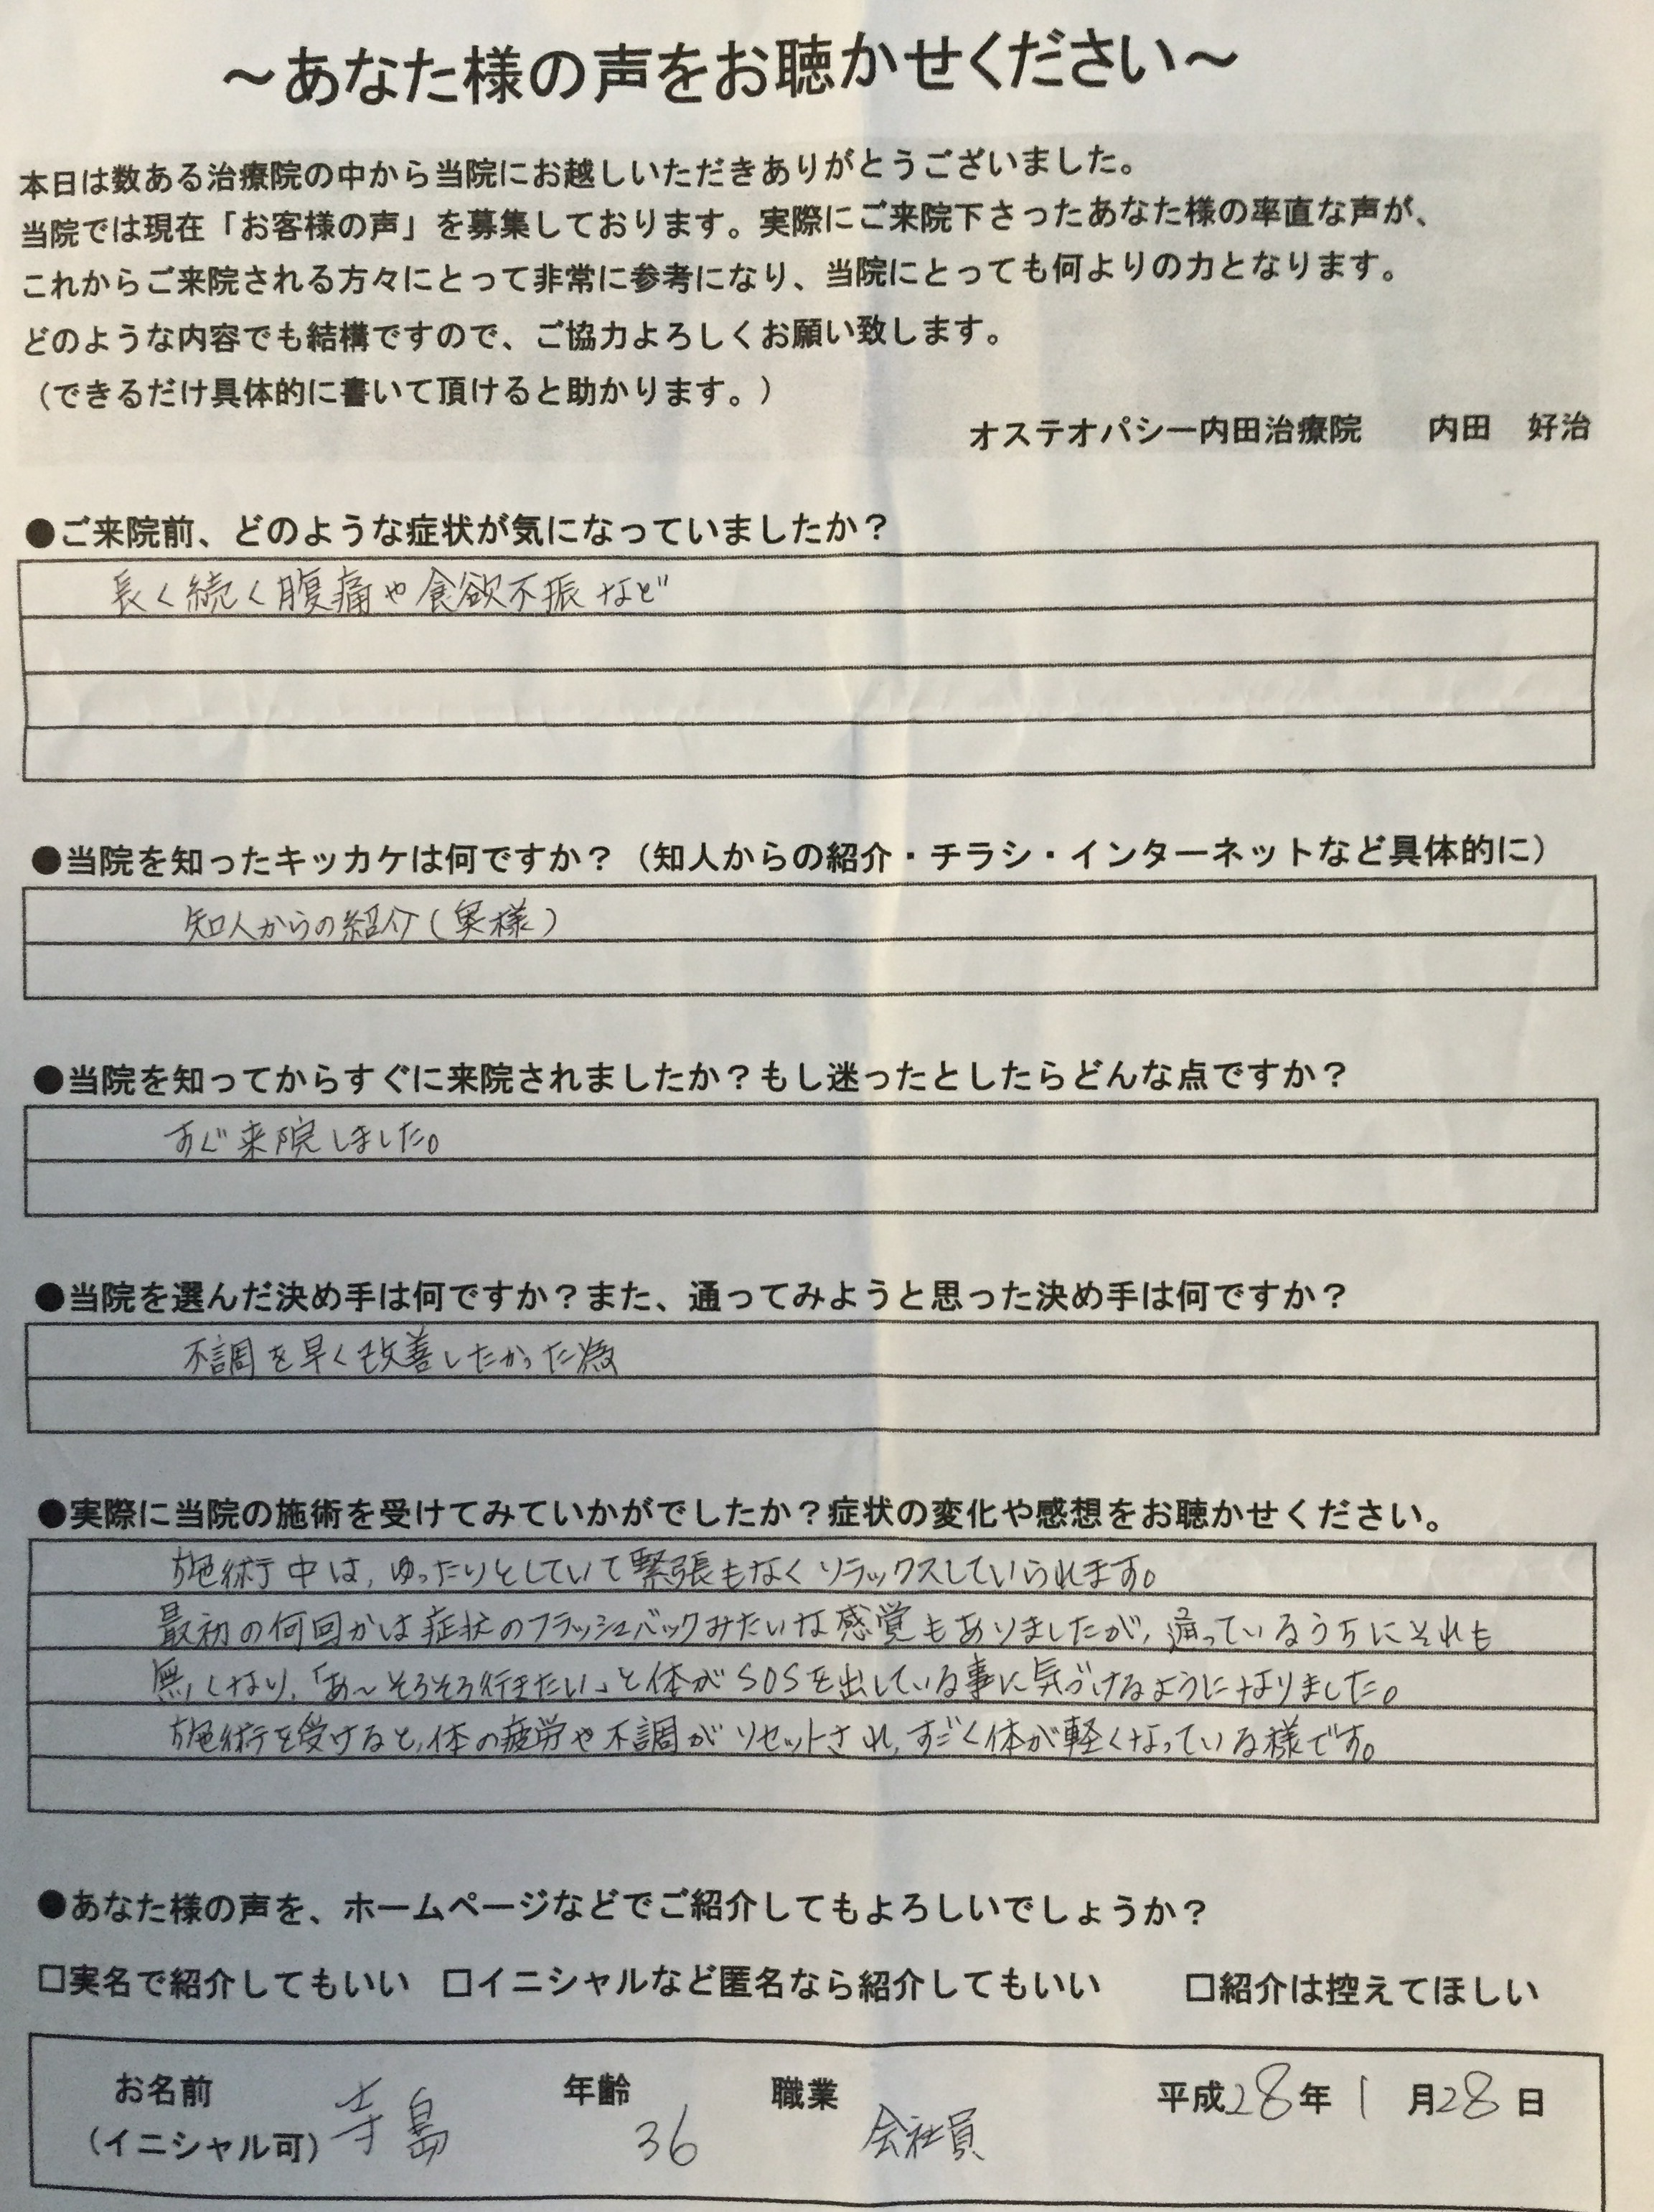 ～あなた様の声をお聴かせください～
本日は数ある治療院の中から当院にお越しいただきありがとうございました。
当院では現在「お客様の声」を募集しております。実際にご来院下さったあなた様の率直な声が、
これからご来院される方々にとって非常に参考になり、当院にとっても何よりの力となります。
どのような内容でも結構ですので、ご協力よろしくお願い致します。
（できるだけ具体的に書いて頂けると助かります。）
オステオパシー内田治療院　内田　好治
●ご来院前、どのような症状が気になっていましたか？
長く続く腹痛や食欲不振など
●当院を知ったキッカケは何ですか？（知人からの紹介・チラシ・インターネットなど具体的に）
知人からの紹介（奥様）
●当院を知ってからすぐに来院されましたか？もし迷ったとしたらどんな点ですか？
すぐ来院しました。
●当院を選んだ決め手は何ですか？また、通ってみようと思った決め手は何ですか？
不調を早く改善したかった為
●実際に当院の施術を受けてみていかがでしたか？症状の変化や感想をお聴かせください。
施術中は、ゆったりとしていて緊張もなくリラックスしていられます。
最初の何回かは症状のフラッシュバックみたいな感覚もありましたが、通っているうちにそれも
無くなり、「あ～そろそろ行きたい」と体がSOSを出している事に気づけるようになりました。
施術を受けると、体の疲労や不調がリセットされ、すごく体が軽くなっている様です。
●あなた様の声を、ホームページなどでご紹介してもよろしいでしょうか？
□実名で紹介してもいい　□イニシャルなど匿名なら紹介してもいい　□紹介は控えてほしい
お名前　年齢　職業　平成28年1月28日
（イニシャル可）寺島　36　会社員